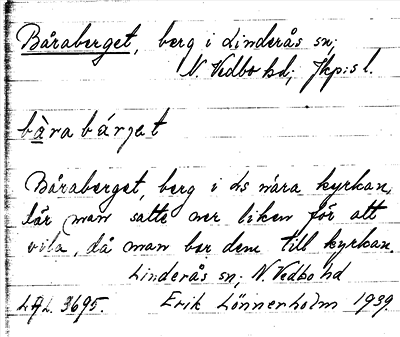 Båraberget, berg i Linderås sn;
N. Vedbo hd; Jkp:s l.
bàrabárjet
Båraberget, berg i Ls nära kyrkan,
där man satte ner liken för att
vila, då man bar dem till kyrkan.
Linderås sn; N. Vedbo hd
LAL. 3695. Erik Lönnerholm 1939.